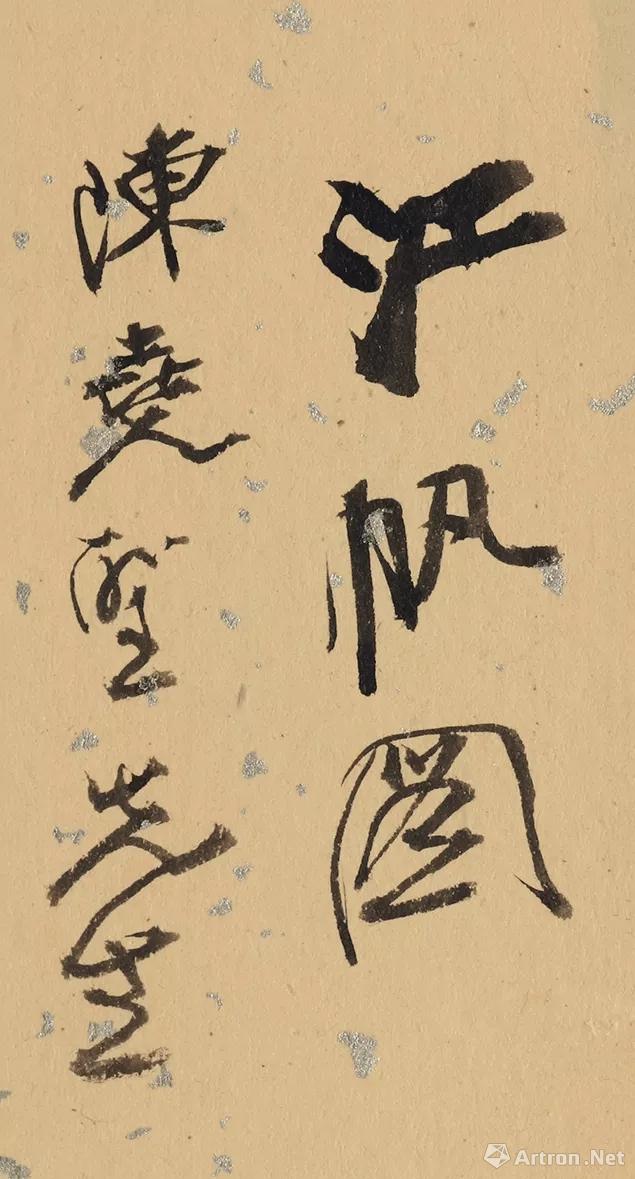 江帆圖
陳堯聖先生
Artron.Net